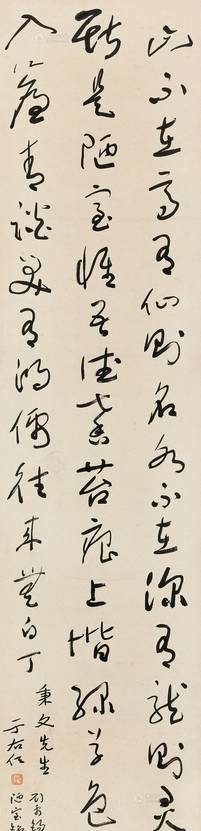 山不在高有仙則名水不在深有龍則靈
斯是陋室惟吾德馨苔痕上階綠草色
入簾青談笑有鴻儒往來無白丁
秉文先生
劉禹錫
于右任
陋室銘